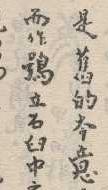 是舊的夲意
而作鴞立石臼中